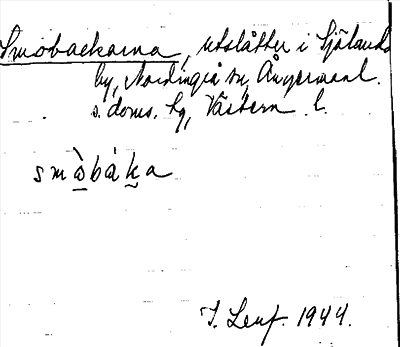 Småbackarna, utslåtter i Själands
by, Nordingrå sn, Ångermanl.
s. doms. hg, Västern. l.
smàbáka
J. Leuf. 1944.